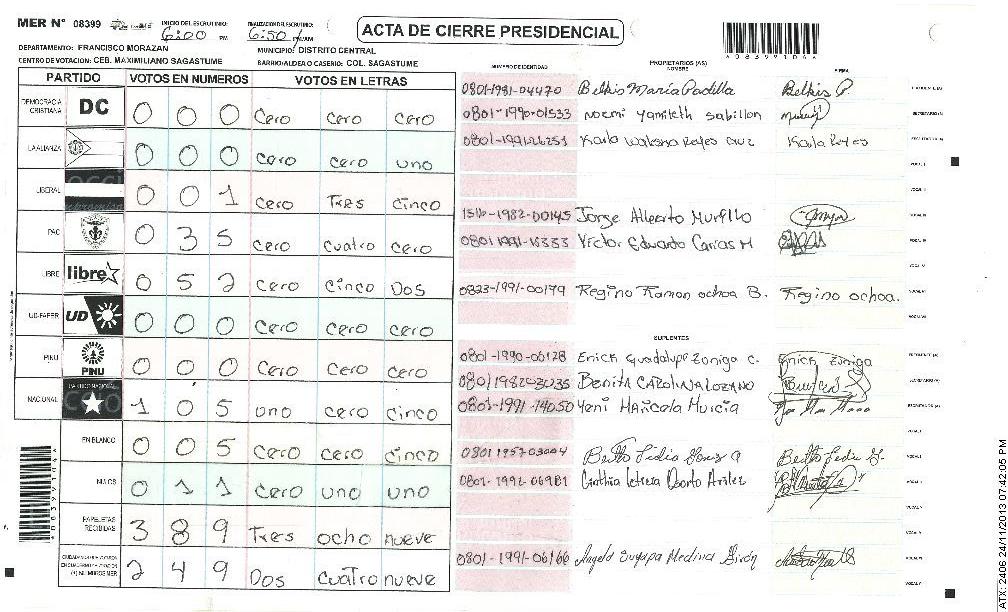 MER N° 08399
INICIO DEL ESCRUTINIO: 6:00 PM
FINALIZACION DEL ESCRUTINIO: 6:50
ACTA DE CIERRE PRESIDENCIAL
DEPARTAMENTO: FRANCISCO MORAZAN
MUNICIPIO: DISTRITO CENTRAL
CENTRO DE VOTACION: CEB. MAXIMILIANO SAGASTUME
BARRIO/ALDEA O CASERIO: COL. SAGASTUME
PARTIDO VOTOS EN NUMEROS VOTOS EN LETRAS
DEMOCRACIA CRISTIANA DC 0 0 0 cero cero cero
LA ALIANZA 0 0 0 cero cero uno
LIBERAL 0 0 1 cero TRES cinco
PAC 0 3 5 cero cuatro cero
LIBRE libre 0 5 2 cero cinco Dos
UD-FAPER UD 0 0 0 cero cero cero
PINU PINU 0 0 0 cero cero cero
NACIONAL 1 0 5 uno cero cinco
EN BLANCO 0 0 5 cero cero cinco
NULOS 0 1 1 cero uno uno
PAPELETAS RECIBIDAS 3 8 9 Tres ocho nueve
2 4 9 Dos cuatro nueve
NUMERO DE IDENTIDAD PROPIETARIOS (AS) NOMBRE FIRMA
0801-1981-04470 Belkis Maria Padilla Belkis P.
0801-1990-01533 Noemi Yamileth Sabillon
Karla Reyes
Jorge Alberto Murillo
Victor Eduardo
0823-1991-00179 Regino Ramon ochoa B. Regino ochoa.
SUPLENTES
0801-1990-06128 Erick Guadalupe Zuniga C. Erick Zuniga
BENITA CAROLINA LOZANO
0801-1991-14050 Murcia
0801-1992-06981
0801-1991-06166 Medina
A083991044
ATX: 2406 24/11/2013 07:42:05 PM